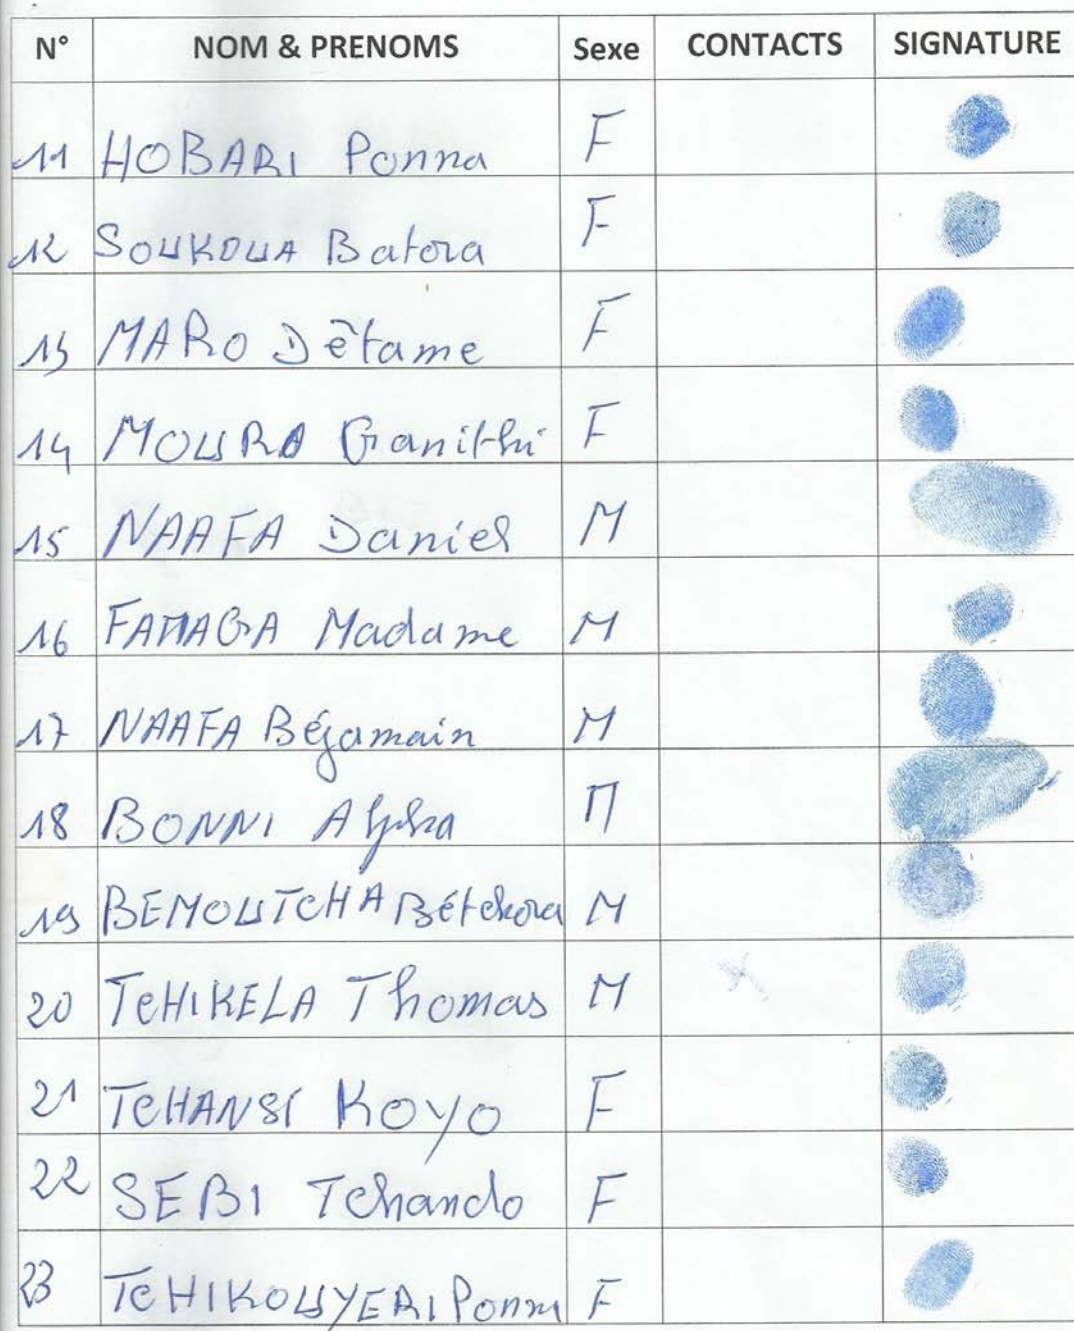 N° NOM & PRENOMS Sexe CONTACTS SIGNATURE
11 HOBARI Ponna F
12 SOUKOUA Batora F
13 MARO Dētame F
14 MOURA Ganithi F
15 NAAFA Daniel M
16 FAMAGA Madame M
17 NAAFA Béjamain M
18 BONNI Alpha M
19 BEMOUTCHA Bétchora M
20 TCHIKELA Thomas M
21 TCHANSI KOYO F
22 SEBI Tchando F
23 TCHIKOUYERI Ponna F